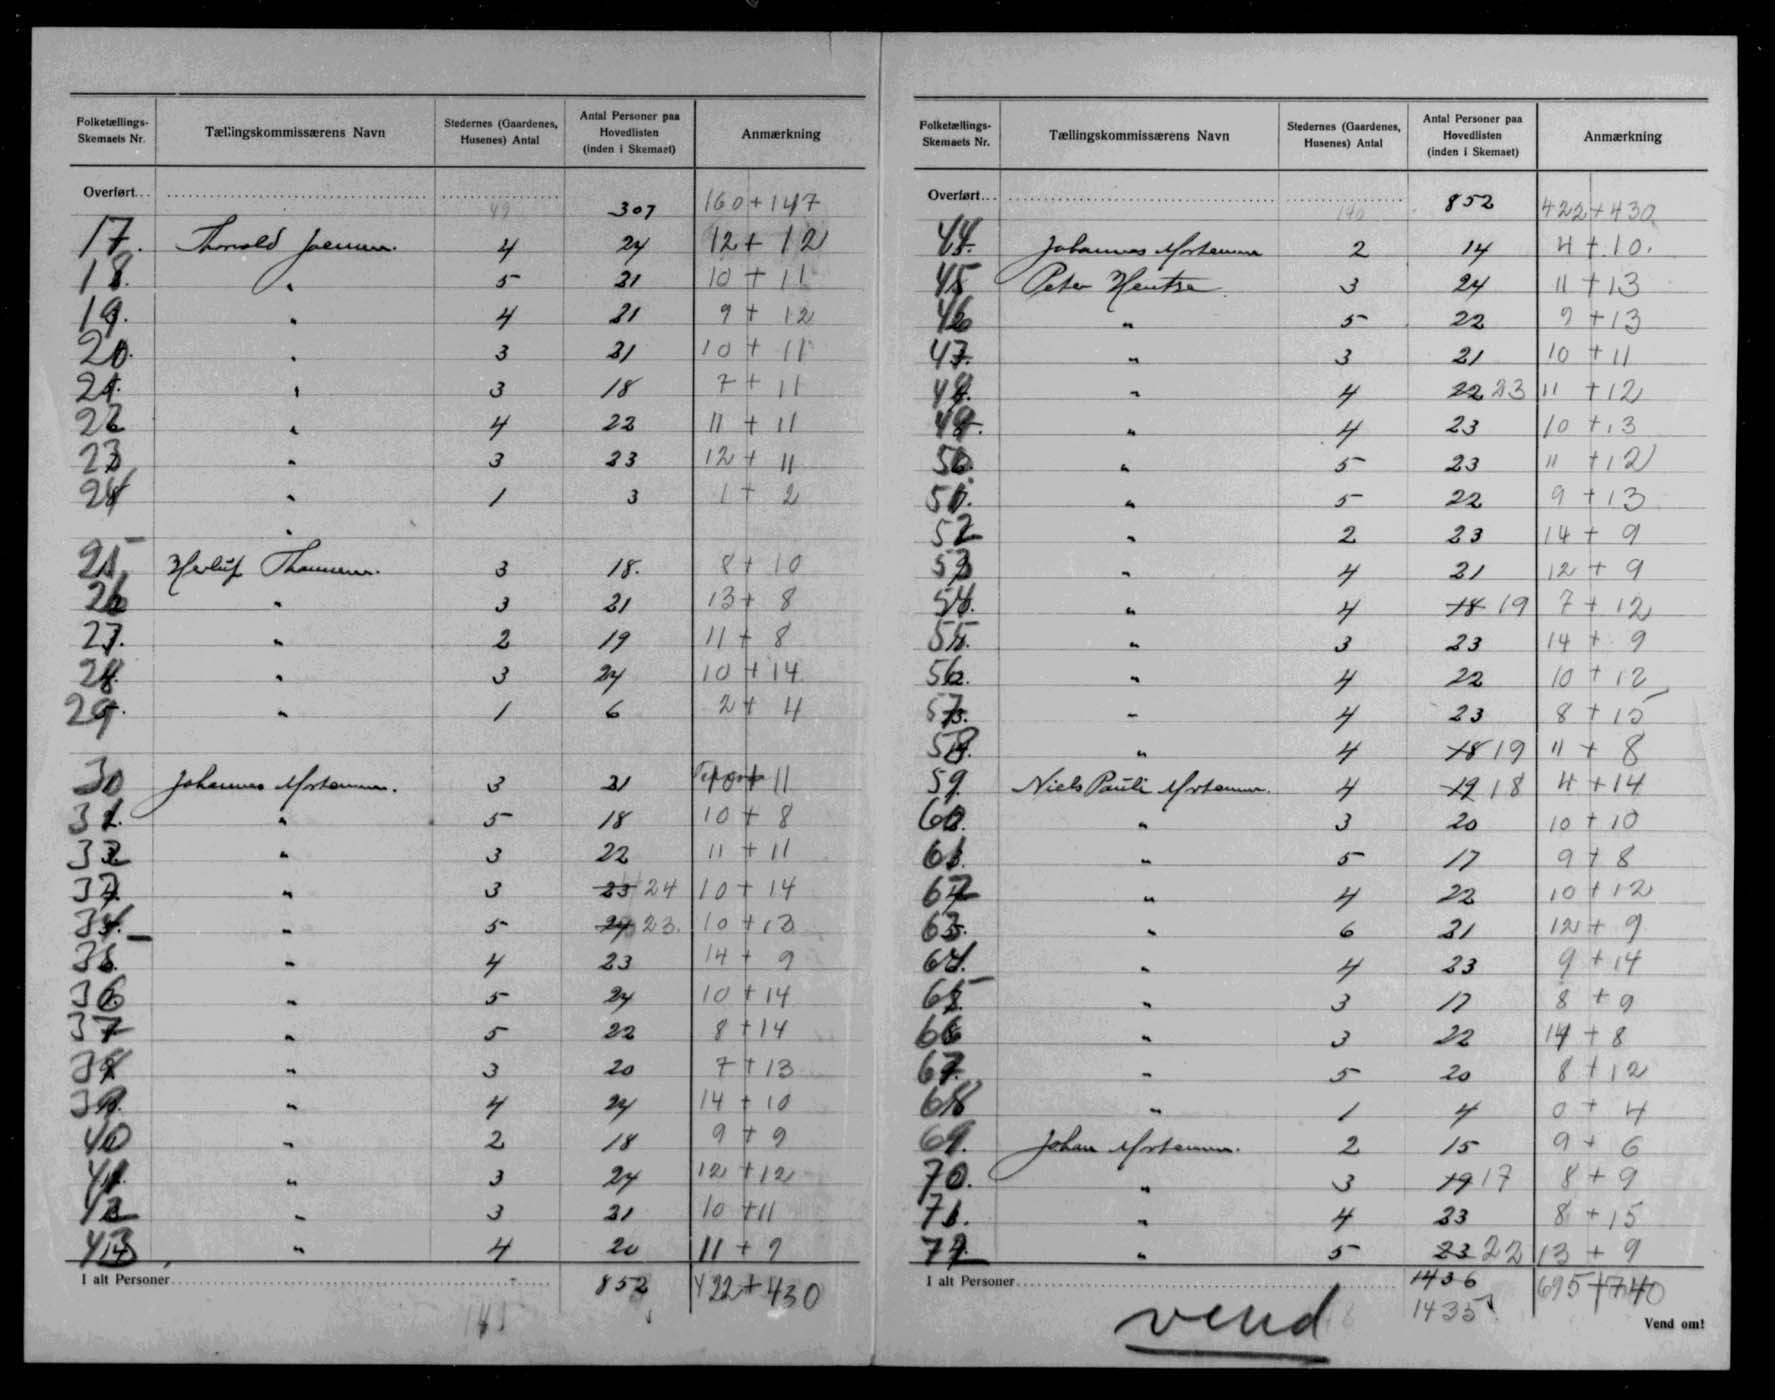 Folketællings-Skemaets Nr. Tællingskommissærens Navn Stedernes (Gaardenes, Husenes) Antal Antal Personer paa Hovedlisten (inden i Skemaet) Anmærkning
Overført... 49 307 160 + 147
17. Thorvald Joensen. 4 24 12 + 12
18. " 5 21 10 + 11
19. " 4 21 9 + 12
20. " 3 21 10 + 11
21. " 3 18 7 + 11
22 " 4 22 11 + 11
23 " 3 23 12 + 11
24 " 1 3 1 + 2
"
25 Herluf Thomsen. 3 18. 8 + 10
26 " 3 21 13 + 8
27. " 2 19 11 + 8
28. " 3 24 10 + 14
29. " 1 6 2 + 4
30 Johannes Mortensen. 3 21 10 + 11
31. " 5 18 10 + 8
32 " 3 22 11 + 11
33. " 3 23 24 10 + 14
34. " 5 24 23. 10 + 13
35. " 4 23 14 + 9
36 " 5 24 10 + 14
37 " 5 22 8 + 14
38 " 3 20 7 + 13
39. " 4 24 14 + 10
40 " 2 18 9 + 9
41. " 3 24 12 + 12
42 " 3 21 10 + 11
43 " 4 20 11 + 9
I alt Personer 852 422 + 430
Folketællings-Skemaets Nr. Tællingskommissærens Navn Stedernes (Gaardenes, Husenes) Antal Antal Personer paa Hovedlisten (inden i Skemaet) Anmærkning
Overført... 140 852 422 + 430
44. Johannes Mortensen 2 14 4 + 10.
45 Peter Hentze. 3 24 11 + 13
46 " 5 22 9 + 13
47. " 3 21 10 + 11
48. " 4 22 23 11 + 12
49. " 4 23 10 + 13
50. " 5 23 11 + 12
51. " 5 22 9 + 13
52 " 2 23 14 + 9
53 " 4 21 12 + 9
54. " 4 18 19 7 + 12
55. " 3 23 14 + 9
56. " 4 22 10 + 12
57. " 4 23 8 + 15
58. " 4 18 19 11 + 8
59. Niels Pauli Mortensen. 4 19 18 4 + 14
60. " 3 20 10 + 10
61. " 5 17 9 + 8
62 " 4 22 10 + 12
63. " 6 21 12 + 9
64. " 4 23 9 + 14
65 " 3 17 8 + 9
66 " 3 22 14 + 8
67. " 5 20 8 + 12
68 " 1 4 0 + 4
69. Johan Mortensen. 2 15 9 + 6
70. " 3 19 17 8 + 9
71. " 4 23 8 + 15
72. " 5 23 22 13 + 9
I alt Personer 1436 695 + 740
1435
vend
Vend om!